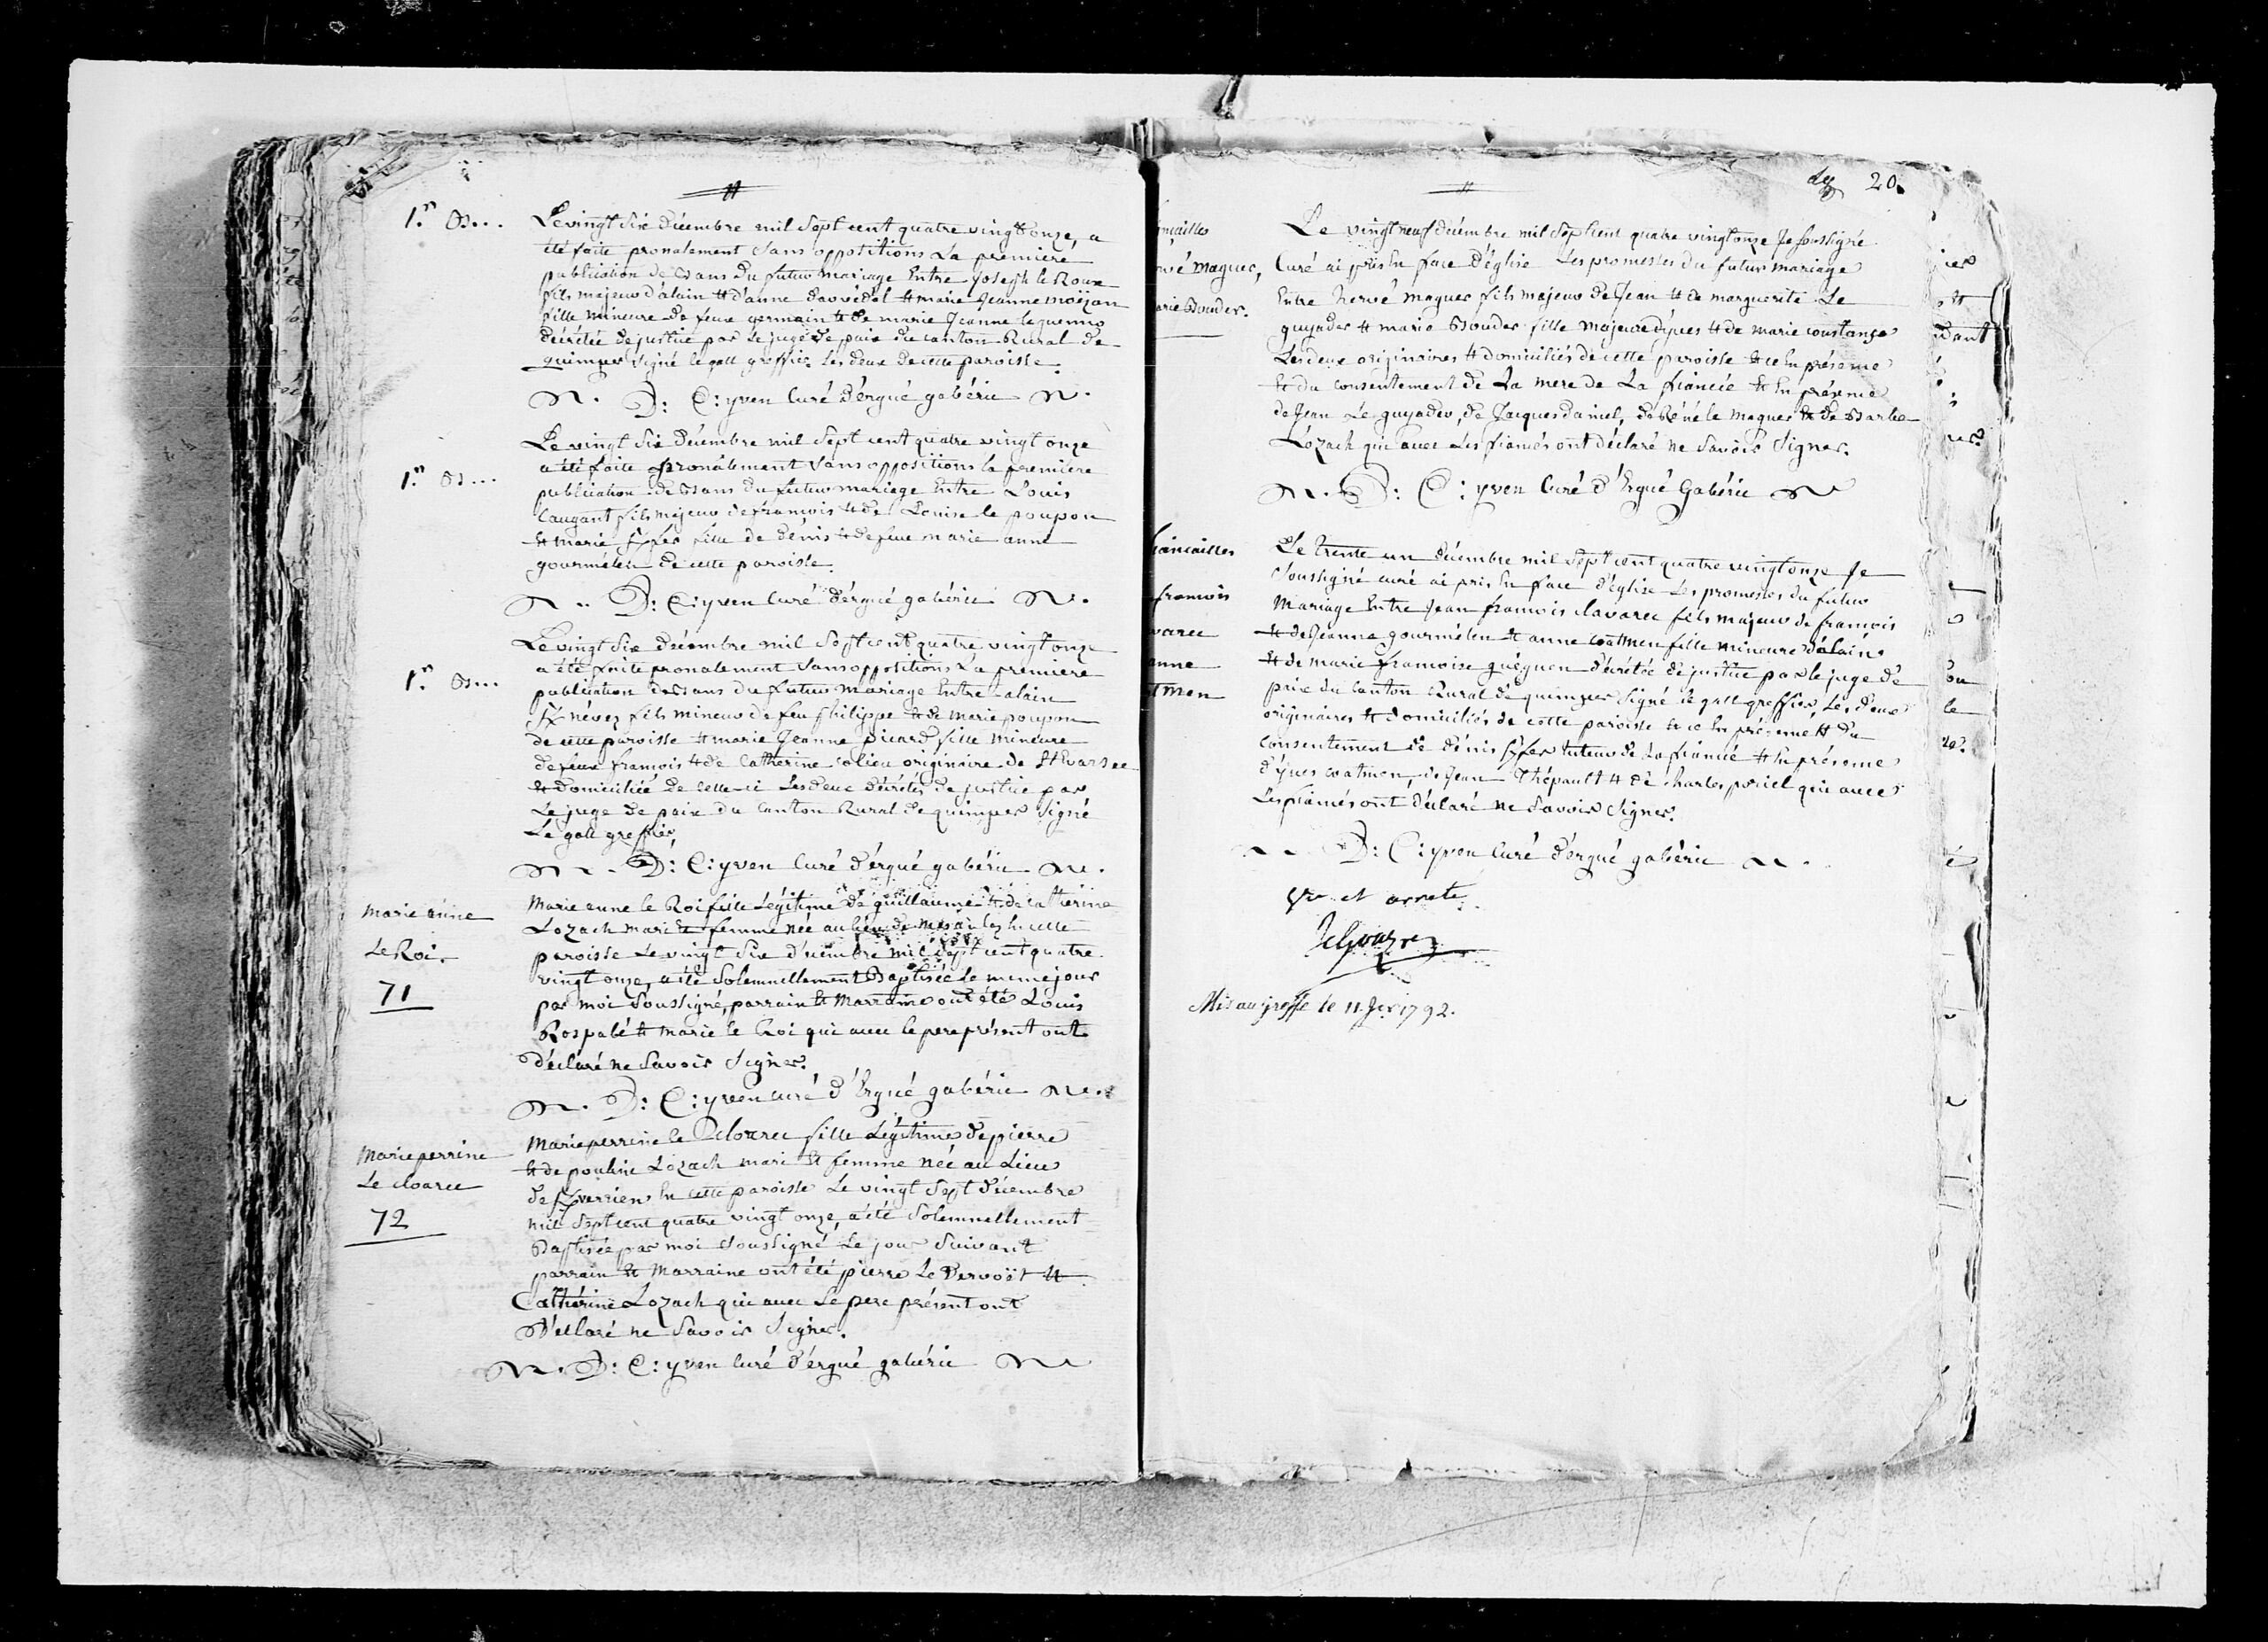 1.r B...
Le vingt six décembre mil sept cent quatre vingt onze, a
été faite pronalement sans oppositions la premiere
publication de Bans du futur mariage Entre joseph le Roux
fils majeur d'alain et d'anne dauvédal et marie jeanne moijan
fille mineure de feux germain et de marie jeanne lequenno
décrétée de justice par le juge de paix du canton Rural de
quimper signé le gall greffier les deux de cette paroisse.
D: C: yven Curé d'érgué gabéric
1.r B...
Le vingt six décembre mil sept cent quatre vingt onze
a été faite pronalement sans oppositions la premiere
publication de Bans du futur mariage Entre Louis
Caugant fils majeur de francois et de Louise le poupon
et marie fille de dénis et de feue marie anne
gourmélen de cette paroisse.
D: C: yven Curé d'érgué gabéric
1.r B...
Le vingt six décembre mil sept cent quatre vingt onze
a été faite pronalement sans oppositions La premiere
publication de Bans du futur mariage Entre alain
névez fils mineur de feu philippe et de marie poupon
de cette paroisse et marie jeanne picard fille mineure
de feux francois et de Catherine colieu originaire de St Evarzec
et domiciliée de celle-ci Les deux décrétés de justice par
Le juge de paix du Canton Rural de quimper signé
Le gall greffier
D: C: yven Curé d'érgué gabéric
Marie anne
Le Roi.
71
Marie anne le Roi fille Légitime de guillaume et de Catherine
Lozach mari et femme née au lieu de En cette
paroisse Le vingt six décembre mil sept cent quatre
vingt onze, a été solemnellement Baptisée le meme jour
par moi soussigné, parrain et Marraine ont été Louis
Rospabé et marie le Roi qui avec le pere présent ont
déclaré ne savoir signer.
D: C: yven curé d'Ergué gabéric
Marie perrine
Le cloarec
72
Marie perrine le Cloarec fille Légitime de pierre
et de pouline Lozach mari et femme née au Lieu
de En cette paroisse Le vingt sept décembre
mil sept cent quatre vingt onze, a été solemnellement
Baptisée par moi soussigné Le jour suivant
parrain et Marraine ont été pierre Le Bervoit et
Cathérine Lozach qui avec Le pere présent ont
Déclaré ne savoir signer.
D: C: yven Curé d'érgué gabéric
20.
ncailles
rvé Maguer,
arie Bouder.
Le vingt neuf décembre mil sept cent quatre vingt onze je soussigné
Curé ai pris En face d'église Les promesses du futur mariage
Entre hervé maguer fils majeur de jean et de marguerite Le
guyader et marie Bouder fille majeure d'yves et de marie constance
Les deux originaires et domiciliés de cette paroisse et ce En présence
et du consentement de La mere de La fiancée et En présence
de jean Le guyader, de jacques daniel, de Réné le maguer et de Barbe
Lozach qui avec Les fiancés ont déclaré ne savoir signer.
D: C: yven Curé d'Ergué Gabéric
fiancailles
francois
varec
anne
tmen
Le trente un décembre mil sept cent quatre vingt onze je
soussigné curé ai pris En face d'église Les promesses du futur
Mariage Entre jean francois clavarec fils majeur de francois
et de jeanne gourmélen et anne coatmen fille mineure d'alain
et de marie francoise guéguen décrétée de justice par le juge de
paix du Canton Rural de quimper signé le gall greffier, Les deux
originaires et domiciliés de cette paroisse et ce En présence et du
consentement de dénis tuteur de La fiancée et En présence
d'yves coatmen, de jean Thépault et de charles poriel qui avec
Les fiancés ont déclaré ne savoir signer.
D: C: yven Curé d'érgué gabéric
Vu et arreté
Mis au greffe le 11. Jer 1792.